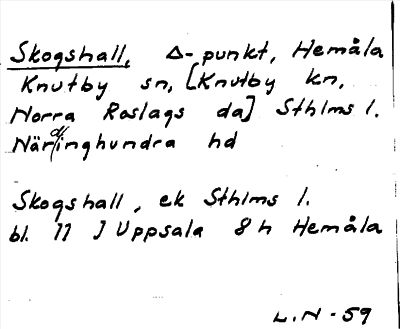 Skogshall, Δ-punkt, Hemåla
Knutby sn, [Knutby kn,
Norra Roslags da] Sthlms l.
Närdinghundra hd
Skogshall, ek Sthlms l.
bl. 11 J Uppsala 8 h Hemåla
L.N-59